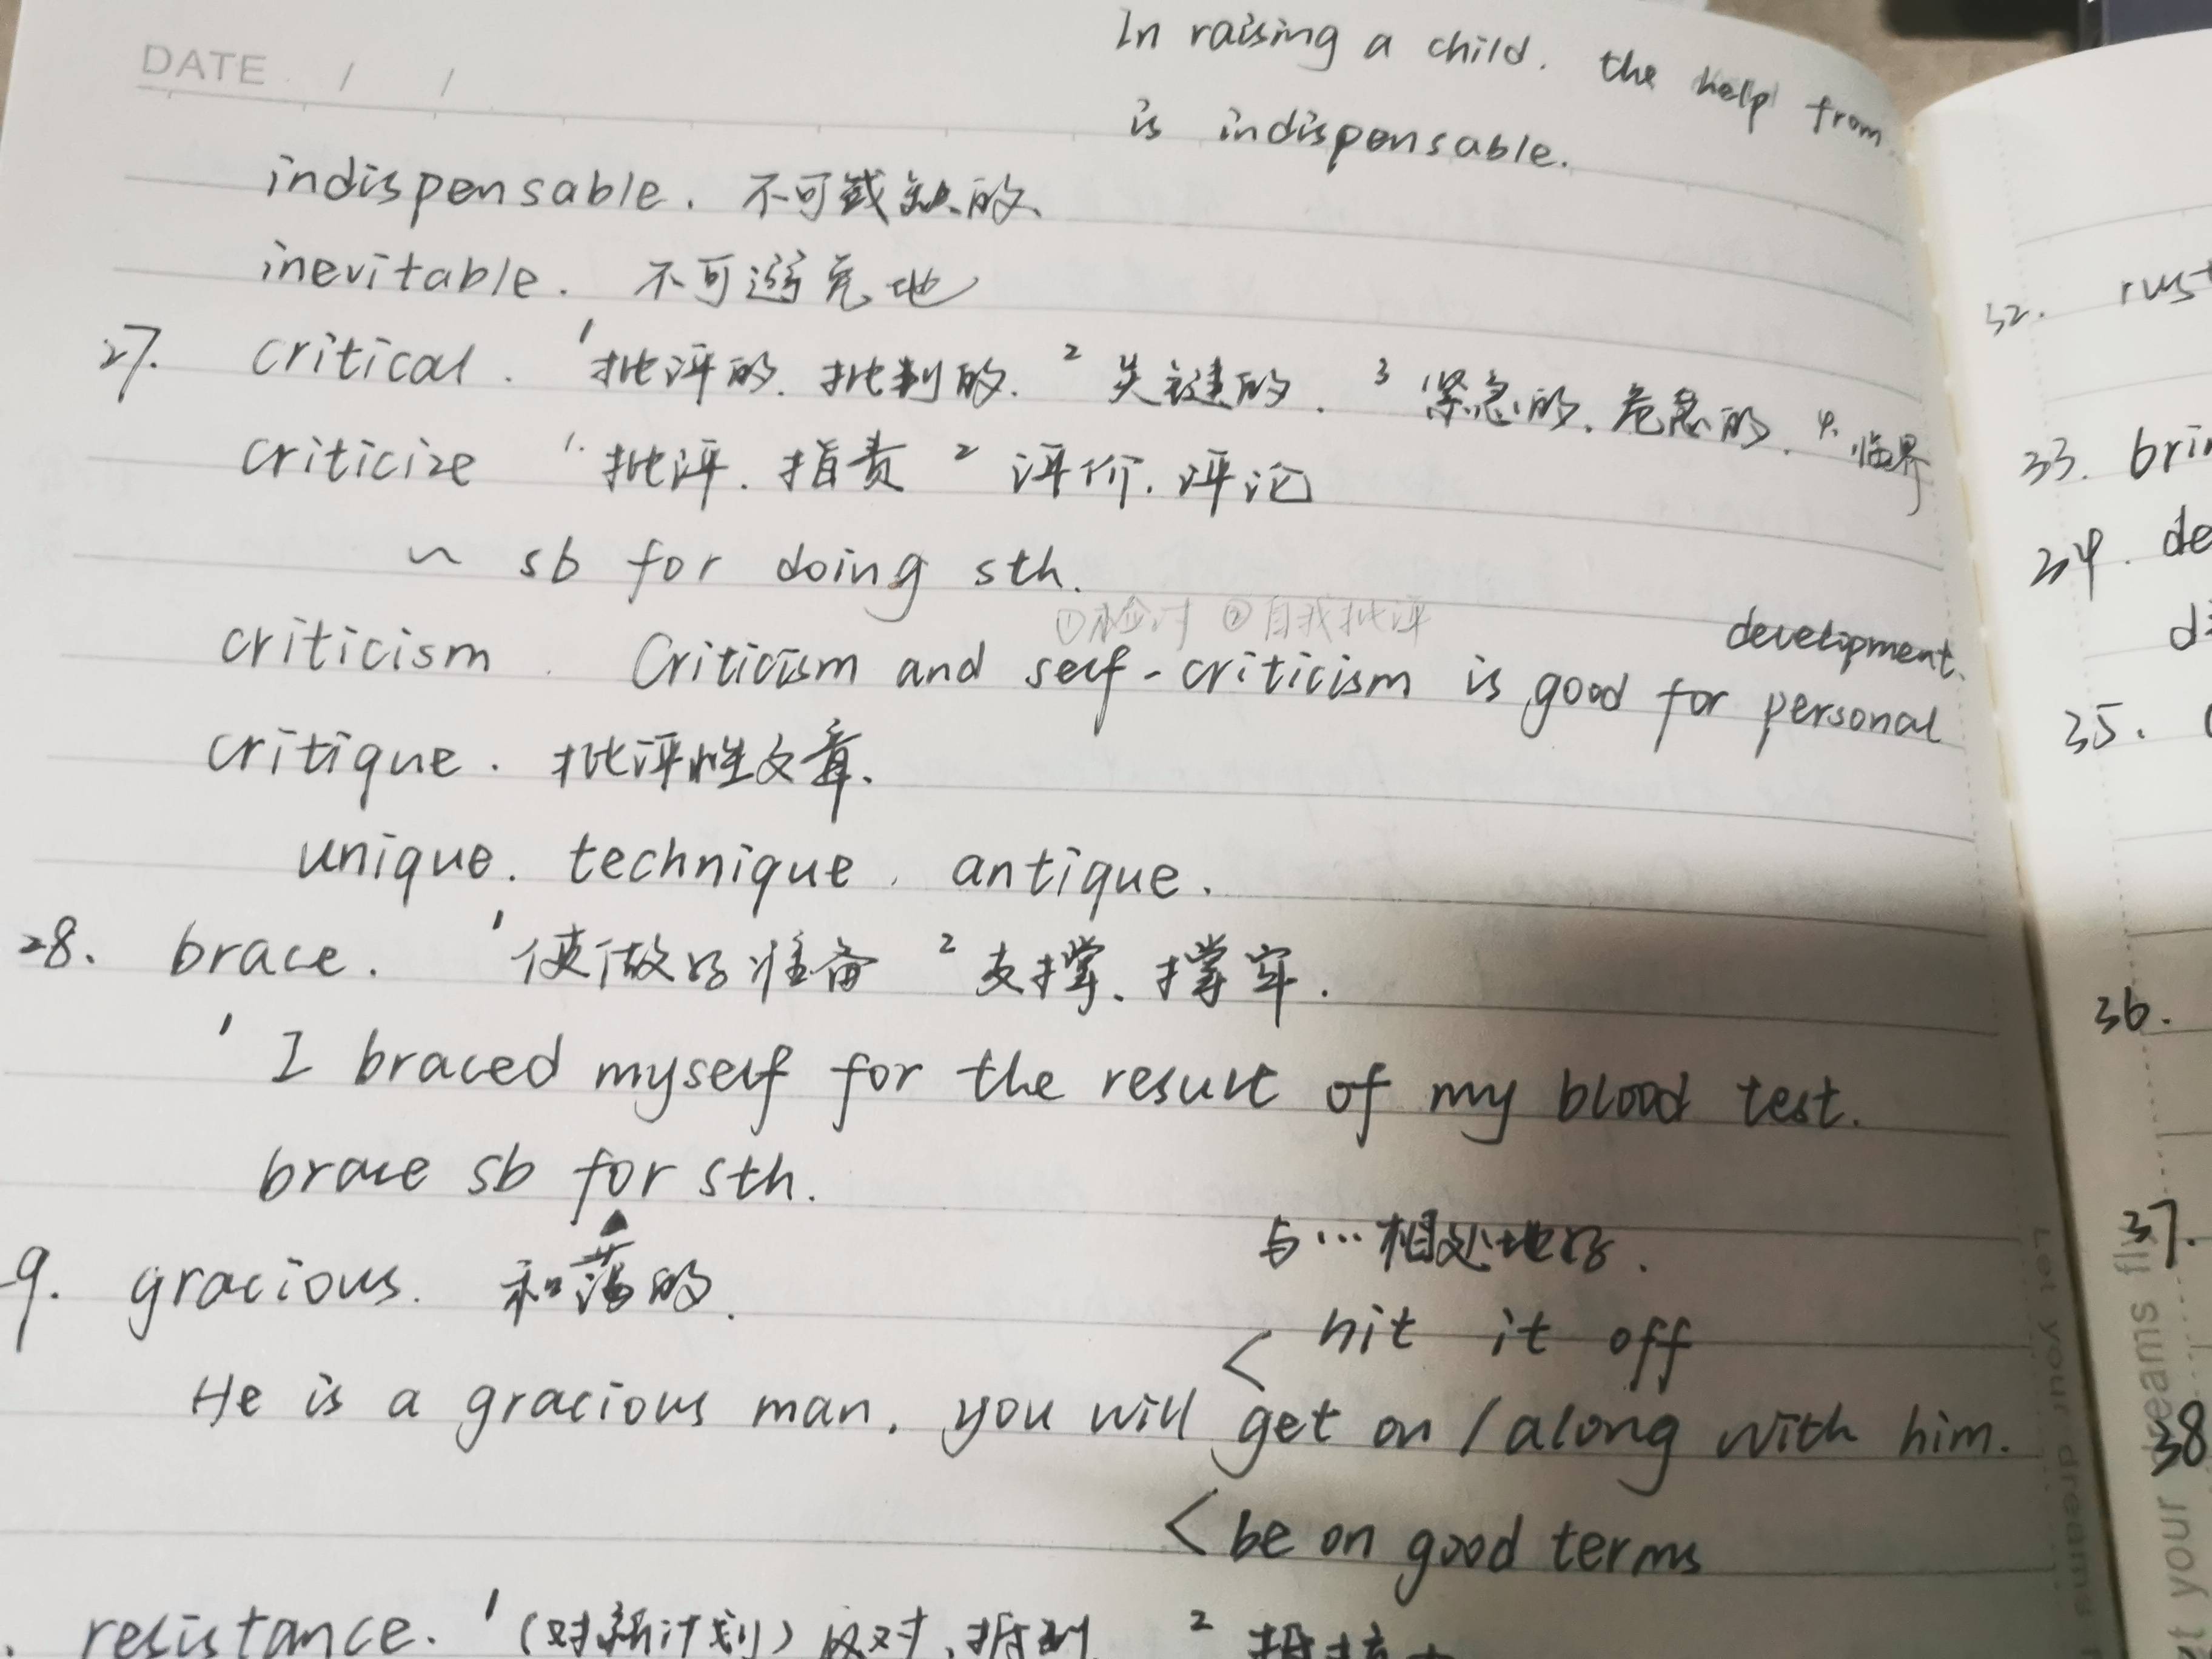 DATE / /
In raising a child. the help from
is indispensable.
indispensable. 不可或缺的
inevitable. 不可避免地
27. critical. 1 批评的. 批判的. 2 关键的. 3 紧急的. 危急的. 4. 临界
criticize 1. 批评. 指责 2 评价. 评论
~ sb for doing sth.
①检讨 ②自我批评
development.
criticism. Criticism and self-criticism is good for personal
critique. 批评性文章.
unique. technique. antique.
28. brace. 1 使做好准备 2 支撑、撑牢.
1 I braced myself for the result of my blood test.
brace sb for sth.
与…相处地好.
9. gracious. 和蔼的.
< hit it off
He is a gracious man, you will get on / along with him.
< be on good terms
resistance. 1 (对新计划) 反对, 2
32. rust
33. brin
34. de
di
35.
36.
37.
38
Let your dreams fly